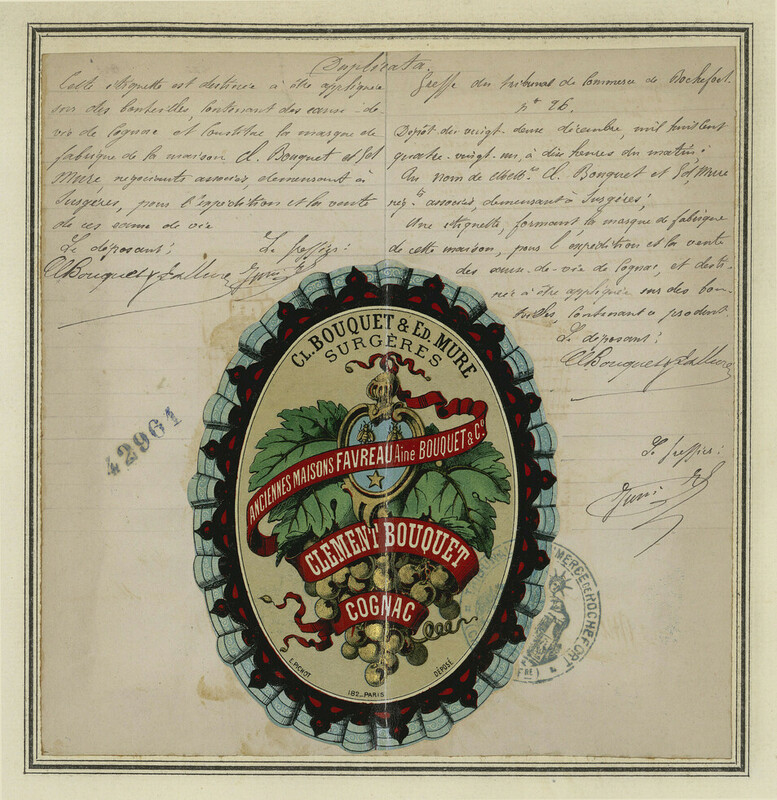 Duplicata.
Cette étiquette est destinée à être appliquée
sur des bouteilles, contenant des eaux-de-
vie de Cognac et constitue la marque de
fabrique de la maison Cl. Bouquet et Ed.
Mure, négociants associés, demeurant à
Surgères, pour l'expédition et la vente
de ces eaux de vie
Le déposant: Le greffier:
Cl Bouquet & Ed Mure
Greffe du tribunal de Commerce de Rochefort.
n° 26.
Dépôt du vingt-deux décembre, mil huit cent
quatre-vingt-un, à dix heures du matin:
Au nom de Cl. Bouquet et Ed. Mure
nég.ts associés, demeurant à Surgères;
Une étiquette, formant la marque de fabrique
de cette maison, pour l'expédition et la vente
des eaux-de-vie de Cognac, et desti-
née à être appliquée sur des bou-
teilles contenant ce produit.
Le déposant:
Cl Bouquet & Ed Mure
Le greffier:
42961
CL. BOUQUET & ED. MURE
SURGÈRES
ANCIENNES MAISONS FAVREAU Ainé BOUQUET & Co.
CLEMENT BOUQUET
COGNAC
E. PICHOT
182_PARIS
DÉPOSÉ
COMMERCE DE ROCHEFORT